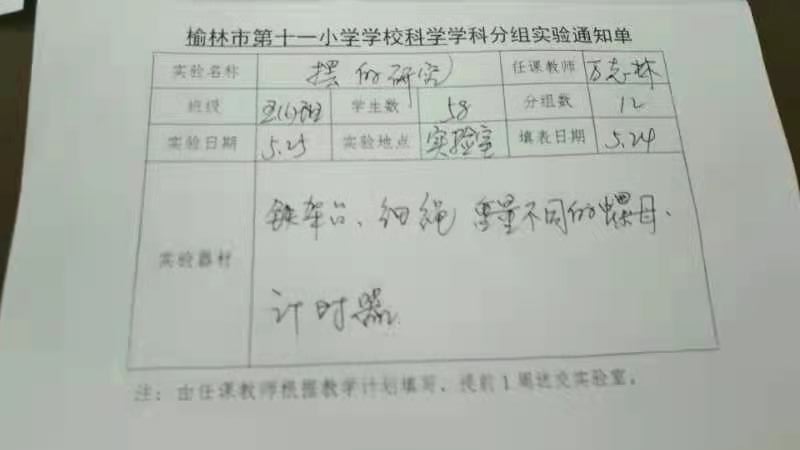 榆林市第十一小学学校科学学科分组实验通知单
实验名称 摆的研究 任课教师 万志林
班级 五(1)班 学生数 58 分组数 12
实验日期 5.25 实验地点 实验室 填表日期 5.24
实验器材
铁架台、细绳 重量不同的螺母、
计时器
注：由任课教师根据教学计划填写，提前1周送交实验室。